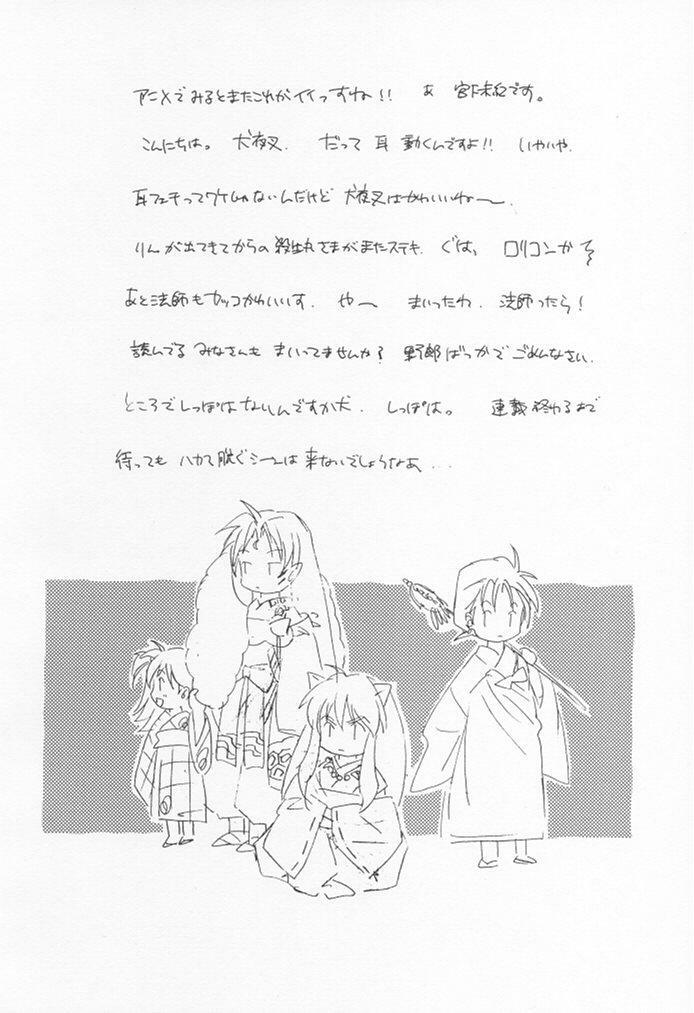 アニメでみるとまたこれがイイっすね!! あ 宮下未紀です。
こんにちは。 犬夜叉. だって 耳 動くんですよ!! いやいや.
耳フェチってワケじゃないんだけど 犬夜叉はかわいいねー.
りんが出てきてからの殺生丸さまがまたステキ. ぐは、 ロリコンか
あと法師もカッコかわいいす. やー まいったわ. 法師ったら!
読んでる みなさんも まいってませんか? 野郎ばっかでごめんなさい.
ところでしっぽはないんですか犬. しっぽは。 連載終わるまで
待っても ハカマ脱ぐシーンは来ないでしょうなあ...